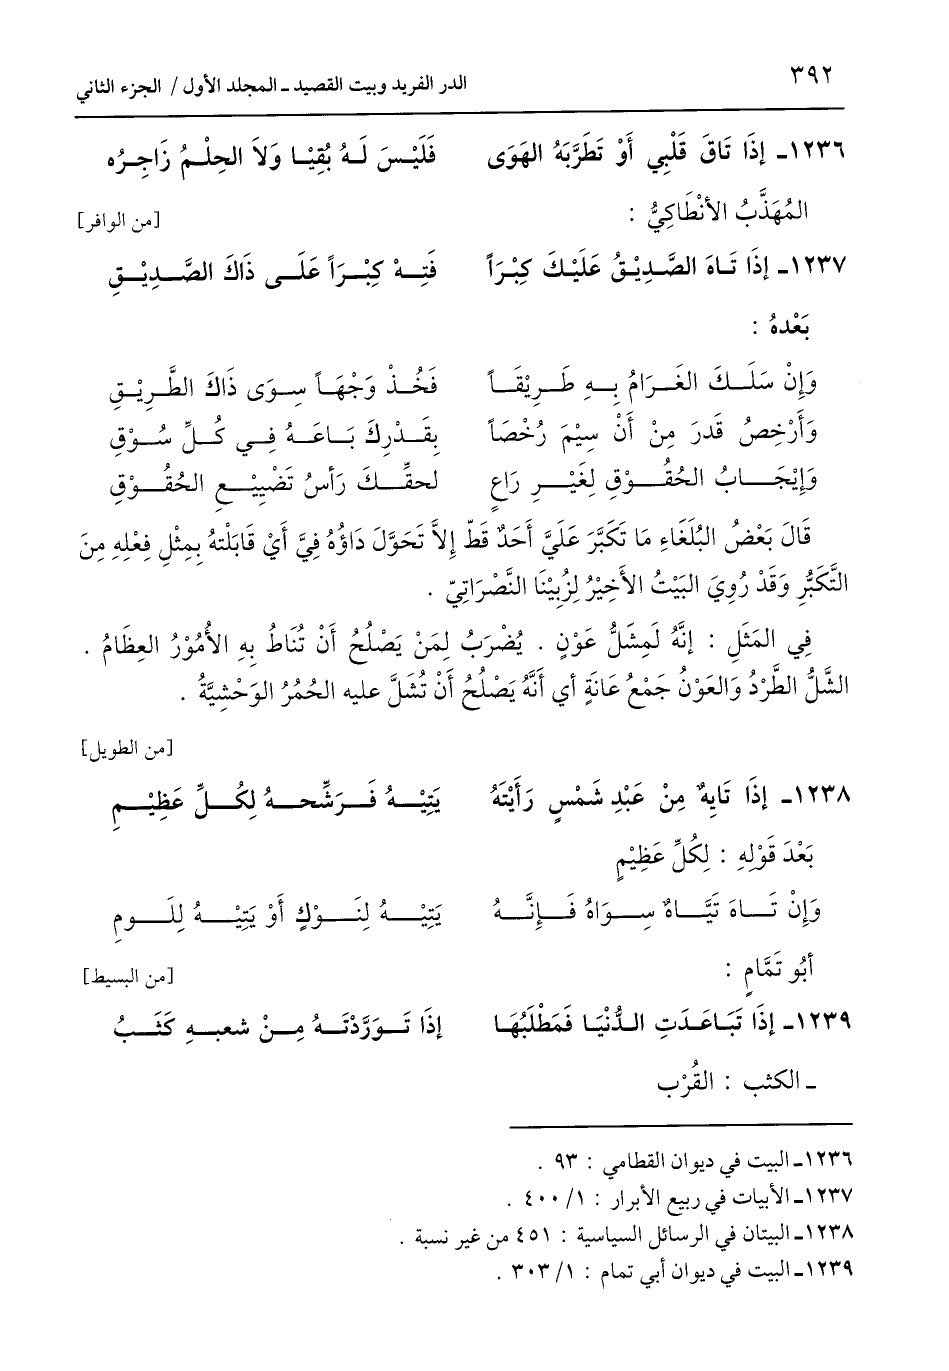 ٣٩٢ الدر الفريد وبيت القصيد ـ المجلد الأول / الجزء الثاني
١٢٣٦ـ إِذَا تَاقَ قَلْبِي أَوْ تَطَرَّبَهُ الهَوَى فَلَيْسَ لَهُ بُقْيَا وَلاَ الحِلْمُ زَاجِرُه
المُهَذَّبُ الأَنْطَاكِيُّ : [من الوافر]
١٢٣٧ـ إِذَا تَاهَ الصَّدِيْقُ عَلَيْكَ كِبْرَاً فَتِهْ كِبْرَاً عَلَى ذَاكَ الصَّدِيْقِ
بَعْدهُ :
وَإِنْ سَلَكَ الغَرَامُ بِهِ طَرِيْقَاً فَخُذْ وَجْهَاً سِوَى ذَاكَ الطَّرِيْقِ
وَأَرْخِصُ قَدرَ مِنْ أَنْ سِيْمَ رُخْصَاً بِقَدْرِكَ بَاعَهُ فِي كُلِّ سُوْقِ
وَإِيْجَابُ الحُقُوْقِ لِغَيْرِ رَاعٍ لحقِّكَ رَأسُ تَضْيِيْعِ الحُقُوْقِ
قَالَ بَعْضُ البُلَغَاءِ مَا تَكَبَّرَ عَلَيَّ أَحَدٌ قَطّ إِلاَّ تَحَوَّلَ دَاؤُهُ فِيَّ أَيْ قَابَلْتهُ بِمِثْلِ فِعْلِهِ مِنَ
التَّكَبُّرِ وَقَدْ رُوِيَ البَيْتُ الأَخِيْرُ لِزُبِيْنَا النَّصْرَانِيّ .
فِي المَثَلِ : إِنَّهُ لَمِشَلُّ عَوْنٍ . يُضْرَبُ لِمَنْ يَصْلُحُ أَنْ تُنَاطُ بِهِ الأُمُوْرُ العِظَامُ .
الشَّلُّ الطَّرْدُ وَالعَوْنُ جَمْعُ عَانَةٍ أي أَنَّهُ يَصْلُحُ أَنْ تُشَلَّ عليه الحُمُرُ الوَحْشِيَّةُ .
[من الطويل]
١٢٣٨ـ إِذَا تَايِهٌ مِنْ عَبْدِ شَمْسٍ رَأَيْتَهُ يَتِيْهُ فَرَشِّحهُ لِكُلِّ عَظِيْمِ
بَعْدَ قَوْلِهِ : لِكُلِّ عَظِيْمٍ
وَإِنْ تَاهَ تَيَّاهٌ سِوَاهُ فَإِنَّهُ يَتِيْهُ لِنَوْكٍ أَوْ يَتِيْهُ لِلُومِ
أَبُو تَمَّامٍ : [من البسيط]
١٢٣٩ـ إِذَا تَبَاعَدَتِ الدُّنْيَا فَمَطْلَبُهَا إِذَا تَوَرَّدْتَهُ مِنْ شعبهِ كَثَبُ
ـ الكثب : القُرْب
١٢٣٦ـ البيت في ديوان القطامي : ٩٣ .
١٢٣٧ـ الأبيات في ربيع الأبرار : ١/ ٤٠٠ .
١٢٣٨ـ البيتان في الرسائل السياسية : ٤٥١ من غير نسبة .
١٢٣٩ـ البيت في ديوان أبي تمام : ١/ ٣٠٣ .